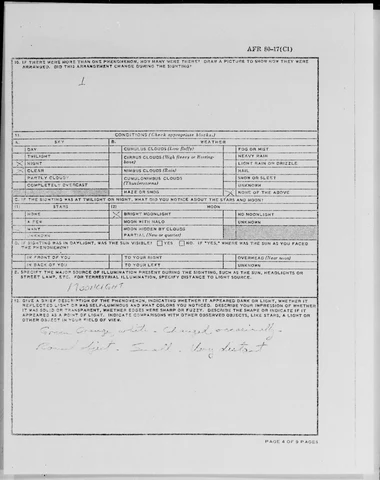 AFR 80-17(C1)
10. IF THERE WERE MORE THAN ONE PHENOMENON, HOW MANY WERE THERE? DRAW A PICTURE TO SHOW HOW THEY WERE
ARRANGED. DID THIS ARRANGEMENT CHANGE DURING THE SIGHTING?
1
11. CONDITIONS (Check appropriate blocks.)
A. SKY B. WEATHER
DAY CUMULUS CLOUDS (Low fluffy) FOG OR MIST
TWILIGHT CIRRUS CLOUDS (High fleecy or Herring-bone) HEAVY RAIN
X NIGHT LIGHT RAIN OR DRIZZLE
X CLEAR NIMBUS CLOUDS (Rain) HAIL
PARTLY CLOUDY CUMULONIMBUS CLOUDS SNOW OR SLEET
COMPLETELY OVERCAST (Thunderstorms) UNKNOWN
HAZE OR SMOG X NONE OF THE ABOVE
C. IF THE SIGHTING WAS AT TWILIGHT OR NIGHT, WHAT DID YOU NOTICE ABOUT THE STARS AND MOON?
(1) STARS (2) MOON
NONE X BRIGHT MOONLIGHT NO MOONLIGHT
A FEW MOON WITH HALO UNKNOWN
MANY MOON HIDDEN BY CLOUDS
UNKNOWN PARTIAL (New or quarter)
D. IF SIGHTING WAS IN DAYLIGHT, WAS THE SUN VISIBLE? YES NO IF "YES" WHERE WAS THE SUN AS YOU FACED
THE PHENOMENON?
IN FRONT OF YOU TO YOUR RIGHT OVERHEAD (Near noon)
IN BACK OF YOU TO YOUR LEFT UNKNOWN
E. SPECIFY THE MAJOR SOURCE OF ILLUMINATION PRESENT DURING THE SIGHTING, SUCH AS THE SUN, HEADLIGHTS OR
STREET LAMP, ETC. FOR TERRESTRIAL ILLUMINATION, SPECIFY DISTANCE TO LIGHT SOURCE.
MOONLIGHT
12. GIVE A BRIEF DESCRIPTION OF THE PHENOMENON, INDICATING WHETHER IT APPEARED DARK OR LIGHT, WHETHER IT
REFLECTED LIGHT OR WAS SELF-LUMINOUS AND WHAT COLORS YOU NOTICED. DESCRIBE YOUR IMPRESSION OF WHETHER
IT WAS SOLID OR TRANSPARENT, WHETHER EDGES WERE SHARP OR FUZZY. DESCRIBE THE SHAPE OR INDICATE IF IT
APPEARED AS A POINT OF LIGHT. INDICATE COMPARISONS WITH OTHER OBSERVED OBJECTS, LIKE STARS, A LIGHT OR
OTHER OBJECT IN YOUR FIELD OF VIEW.
Green Orange white - Changed occasionally
Round light - Small - Very distant
PAGE 4 OF 5 PAGES